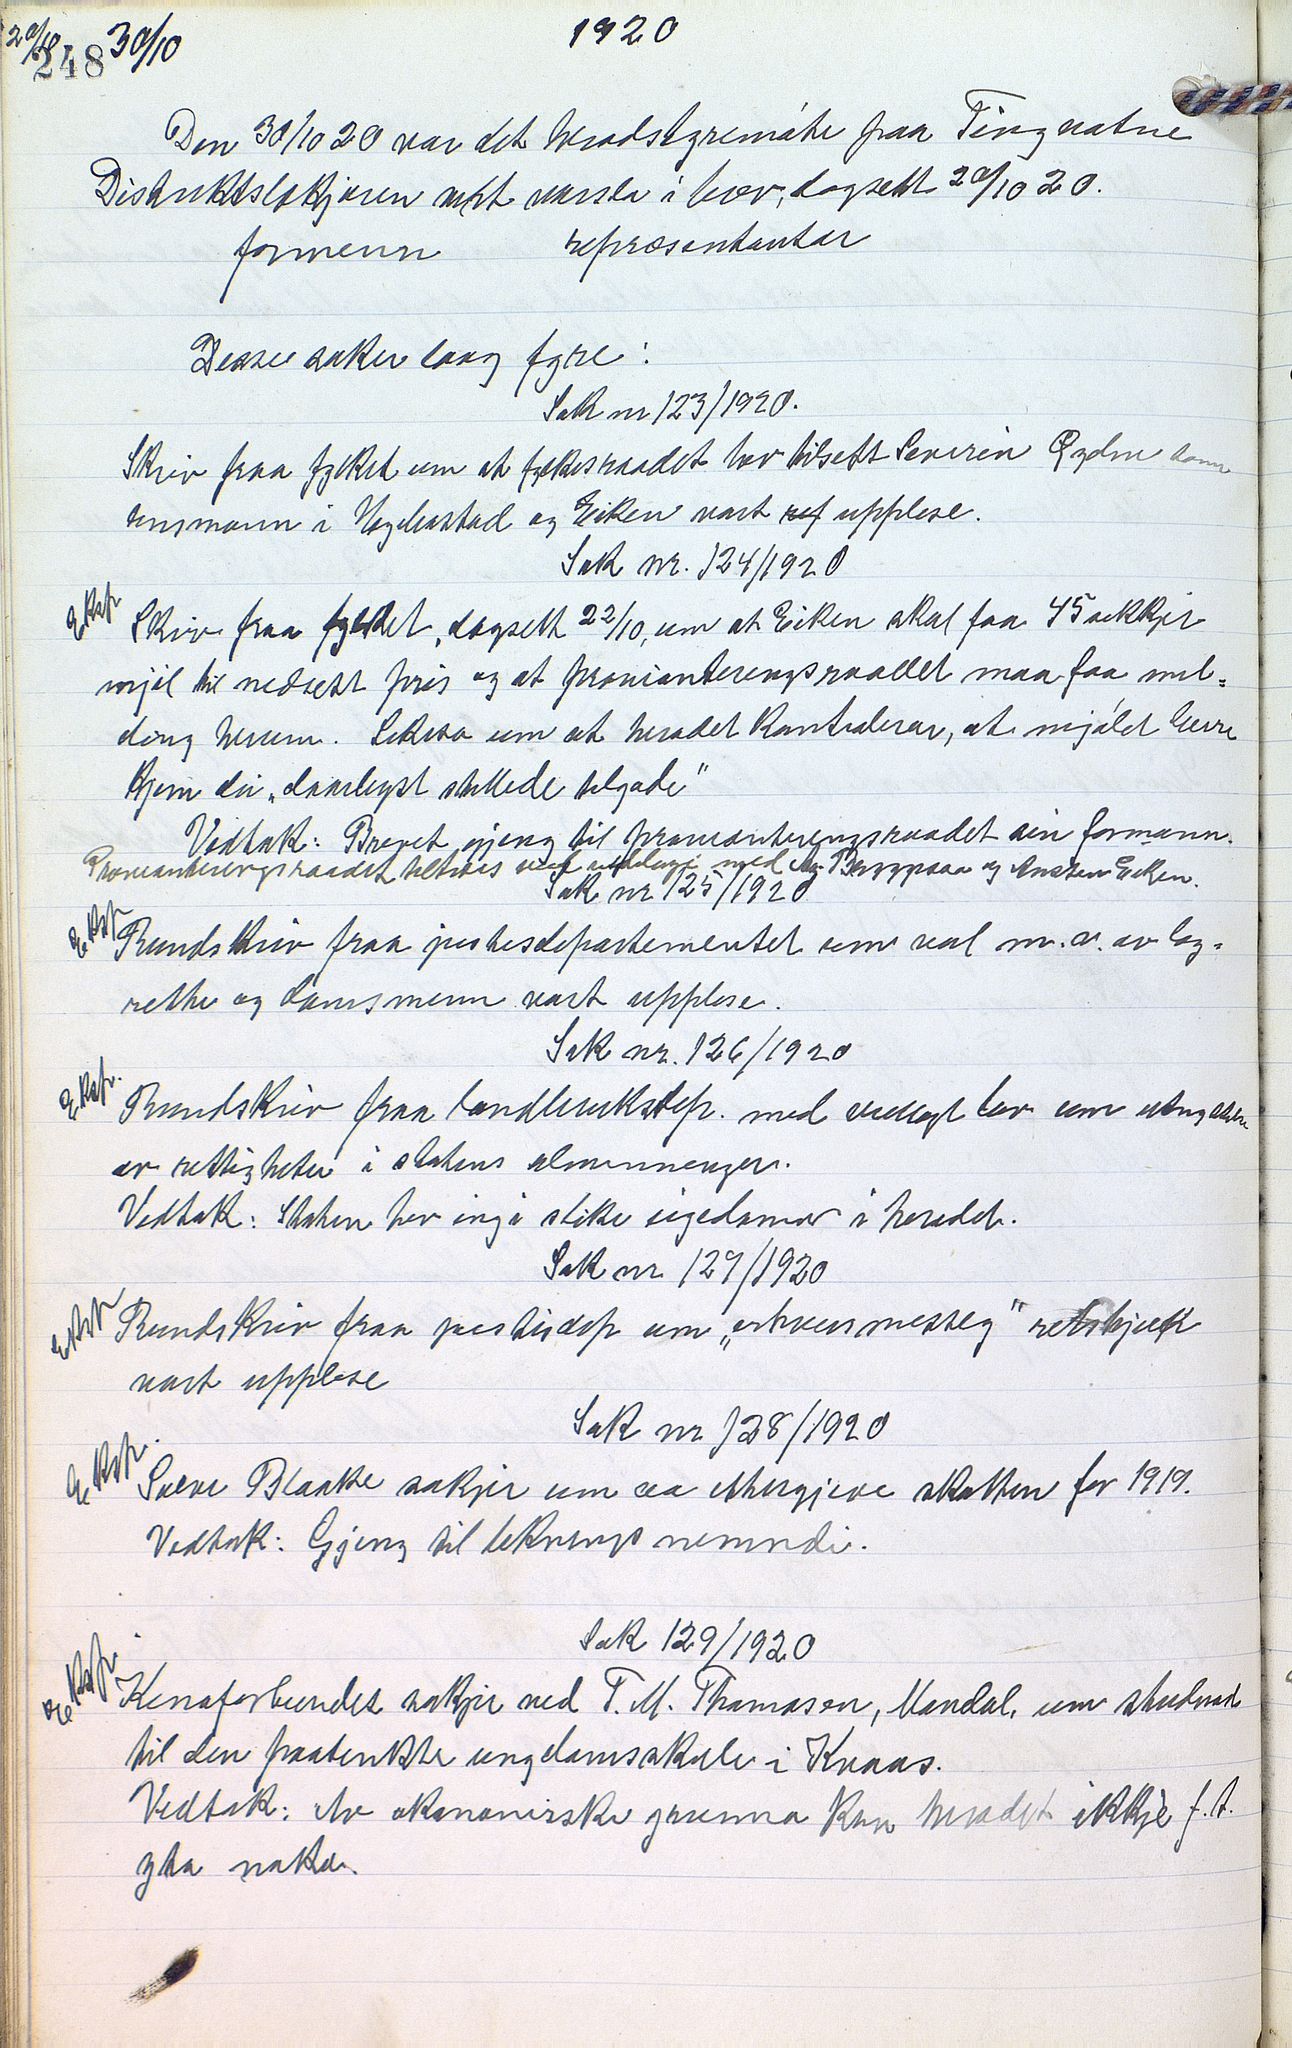 20/10 30/10 1920
248
Den 30/10 20 var det heradstyremøte paa Tingvatne
Distriktslækjaren vart varsla i brev, dagsett 20/10 20.
formenn representantar
Desse saker laag fyre:
Sak nr 123/1920.
Skriv fraa fylket um at fylkesraadet hev tilsett Severin Rydn som
lensmann i Hægebostad og Eiken vart upplese.
Sak nr. 124/1920
Eksp. Skriv fraa fylket, dagsett 22/10, um at Eiken skal faa 45 sekkjer
mjøl til nedsett pris og at provianteringsraadet maa faa mel-
ding herum. Likeso um at heradet kontrolerar, at mjølet berre
kjem dei "daarlegst stillede tilgode"
Vedtak: Brevet gjeng til provianteringsraadet sin formann.
Provianteringsraadet tiltrås ved utdelingi med Berggsaa og Austen Eiken.
Sak nr 125/1920
Eksp. Rundskriv fraa justisdepartementet um val m. v. av lag-
rette og domsmenn vart upplese.
Sak nr. 126/1920
Eksp. Rundskriv fraa landbruksdep. med vedlagt lov um utnyttelse
av rettigheter i statens almenninger.
Vedtak: Staten hev ingi slike eigedomar i heradet.
Sak nr 127/1920
Eksp Rundskriv fraa justisdep um "erhvervsmessig" rettshjelp
vart upplese
Sak nr 128/1920
Eksp. Salve Blaake søkjer um aa ettergjeve skatten for 1919.
Vedtak: Gjeng til liknings nemndi.
Sak 129/1920
Eksp. Kinaforbundet søkjer ved T. M. Thomasen, Mandal, um studnad
til den paatenkte ungdomsskule i Kvaas.
Vedtak: Av økonomiske grunna kan heradet ikkje f. t.
yta noko.